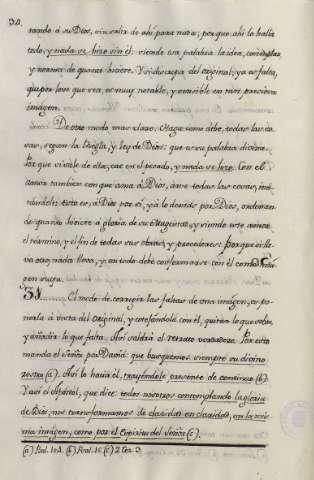 30.
rando á su Dios, sin salir de ahi para nada; porque ahi lo halla
todo, y nada se hizo sin él: siendo esa palabra la idea, con exemplar,
y norma de quanto hiciere. Y si discrepa del original, ya es falta,
qui por leve que sea, es muy notable, y terrible en tan preciosa
imagen.
De otro modo mas claro. Haga como debe, todas las co-
sas, segun la Regla, y ley de Dios: que es su palabra divina.
Por que si sale de ella, cae en el pecado, y nada se hizo. Con el
amor tambien con que ama á Dios, ame todas las cosas, mi-
randolas; esto es, á Dios por sí, y á lo demás por Dios, ordenan-
do quanto hiciere á gloria de su Magestad, y siendo este amor
el término, y el fin de todas sus obras, y procederes. Porque si lle-
va otro, nada lleva, y en todo debe conformarse con él como Ima-
gen suya.
31. El modo de corregir las faltas de una imagen, es po-
nerla á vista del original, y cotejándola con él, quitar lo que sobra,
y añadir lo que falta. Asi saldrá el retrato verdadero. Por esto
manda el Señor por David: que busquemos siempre su divino
rostro (a). Asi lo hacia él, trayéndole presente de continuo (b).
Y asi el Apóstol, que dice: todos nosotros contemplando la gloria
de Dios, nos transformamos de claridad en claridad, en la mis-
ma imagen, como por el Espiritu del Señor (c).
(a) Psal. 104. (b) Psal. 15. (c) 2 Cor. 3.